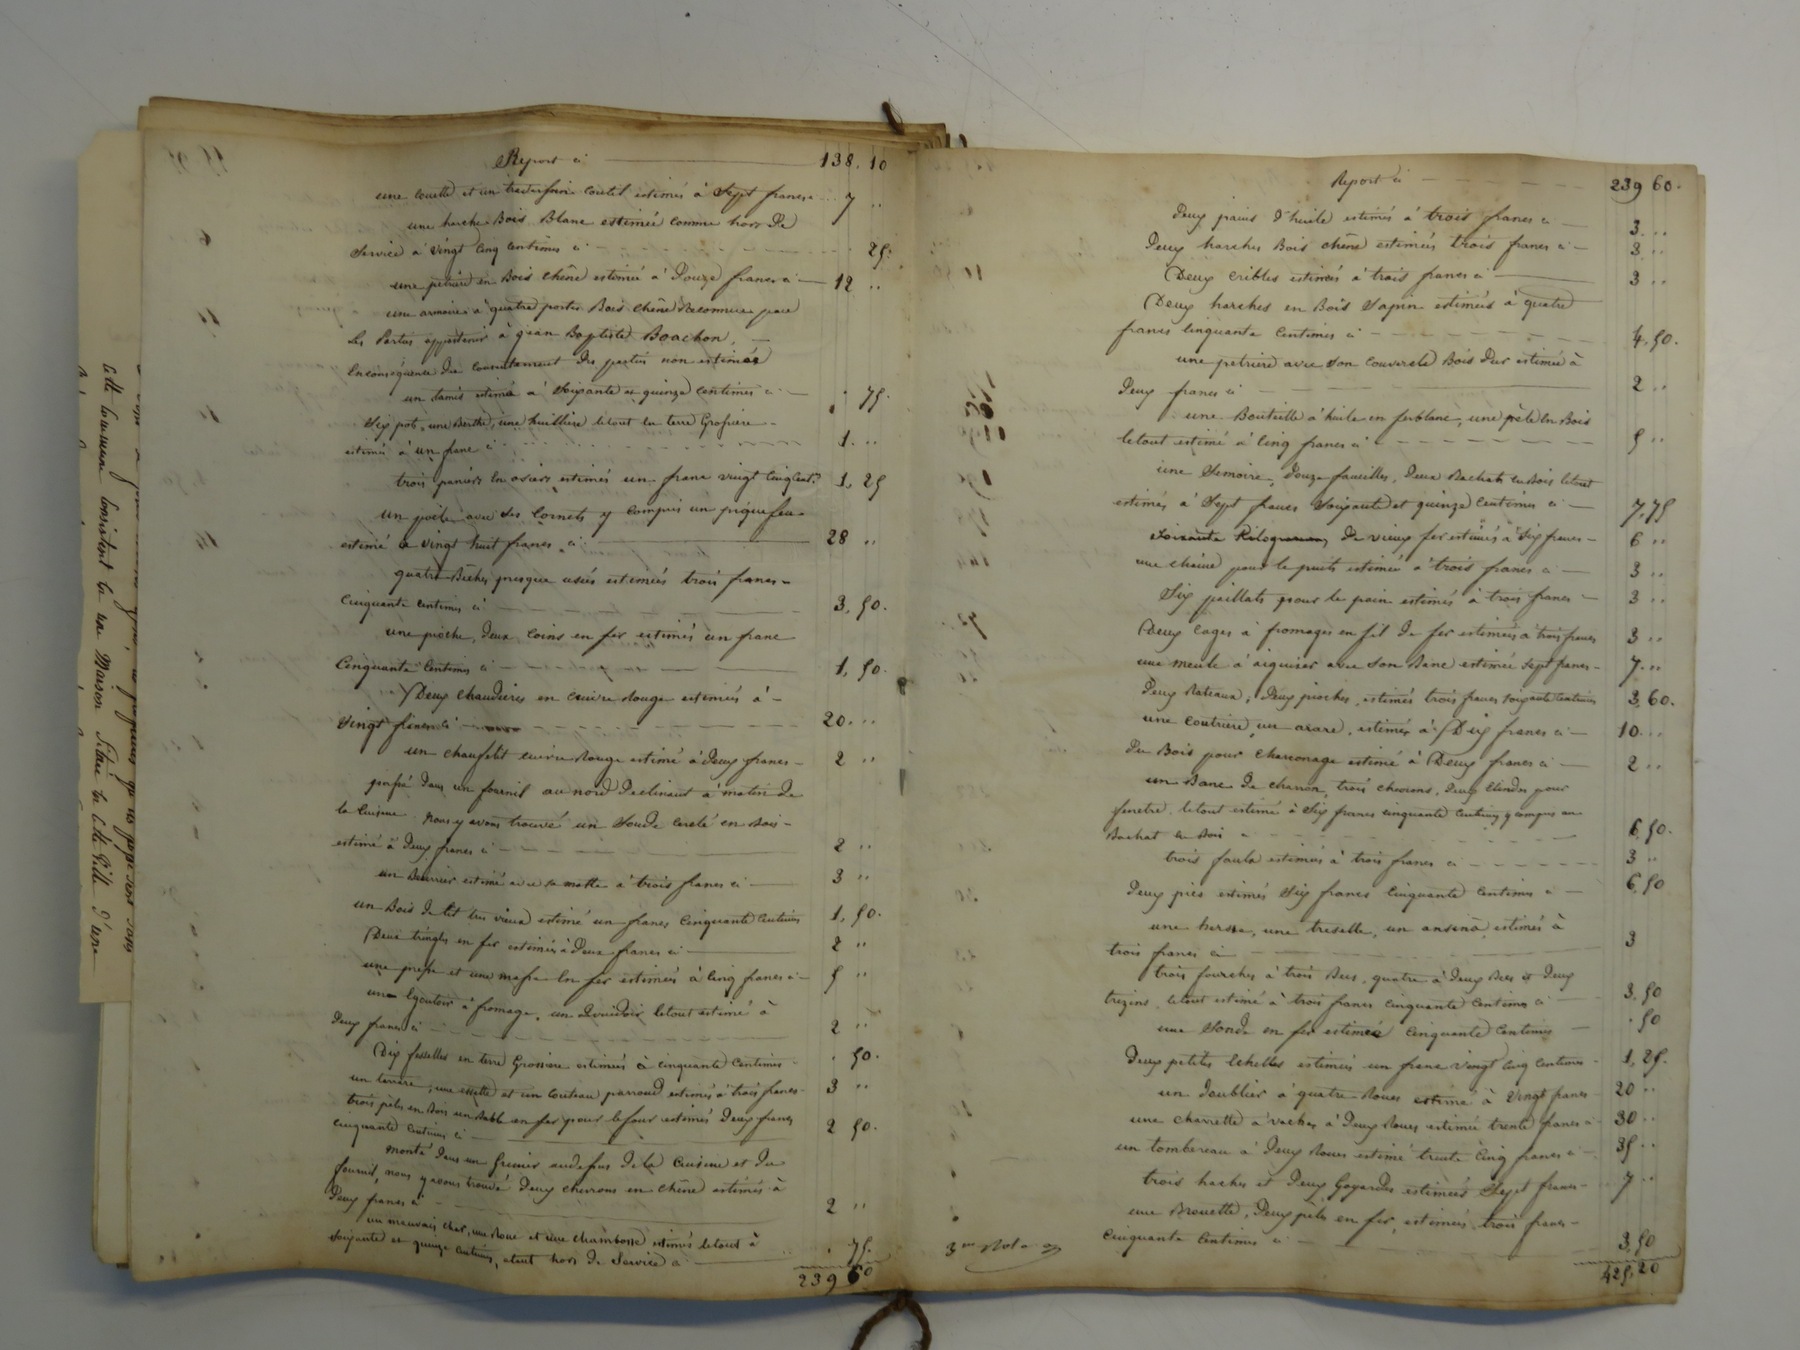 Report ci 138. 10
une couette et un traversin coutil estimés à Sept francs 7 ..
une harche Bois Blanc estimée comme hors de
Service à vingt cinq centimes ci 25.
une petrière en Bois chêne estimée à Douze francs ci 12 ..
une armoire à quatre portes Bois chêne reconnue par
les Parties appartenir à jean Baptiste Boachon,
En conséquence du consentement des parties non estimée
un tamis estimé à Soixante et quinze centimes ci . 75.
Six pots, une Berthe, une huillière letout en terre Grossière
estimé à un franc ci 1. ..
trois paniers en osiers estimés un franc vingt cinq Cent. 1, 25
un poële avec ses Cornets y compris un piquefeu
estimé à vingt huit francs ci 28 ..
quatre Bêches presque usées estimées trois francs
Cinquante Centimes ci 3, 50.
une pioche, deux Coins en fer estimés un franc
Cinquante Centimes ci 1, 50.
Deux Chaudières en cuivre Rouge estimées à
Vingt francs ci 20. ..
un chaufelit cuivre Rouge estimé à deux francs 2 ..
passé dans un fournil au nord Declinant à matin de
la Cuisine. Nous y avons trouvé un Seude cerclé en Bois
estimé à deux francs ci 2 ..
un Beurrier estimé avec sa matte à trois francs ci 3 ..
un Bois de lit très vieux estimé un franc Cinquante Centimes 1, 50.
Deux tringles en fer estimées à Deux francs ci 2 ..
une presse et une masse en fer estimés à Cinq francs ci 5 ..
un Egoutoir à fromage, un Devidoir letout estimé à
deux francs ci 2 ..
Dix fesselles en terre Grossière estimées à cinquante Centimes . 50.
un tarare, une et un Couteau parroud estimés à trois francs 3 ..
trois pèles en Bois un Rable en fer pour le four estimés Deux francs
cinquante Centimes ci 2 50.
monté dans un Grenier audessus de la Cuisine et du
fournil, nous y avons trouvé deux chevrons en chêne estimés à
deux francs ci 2 ..
un mauvais char, une Roue et une chambosse estimés letout à
Soixante et quinze Centimes, étant hors de Service ci . 75.
239 60
Report ci 239 60.
Deux paires d'huile estimés à trois francs ci 3. ..
Deux harches Bois chêne estimées trois francs ci 3 ..
Deux cribles estimés à trois francs ci 3 ..
Deux harches en Bois Sapin estimées à quatre
francs Cinquante Centimes ci 4. 50.
une petrière avec son couvercle Bois Dur estimée à
Deux francs ci 2 ..
une Bouteille à huile en ferblanc, une pèle en Bois
letout estimé à Cinq francs ci 5 ..
une Semoire, Douze faucilles, deux Bachats en Bois letout
estimés à Sept francs Soixante et quinze Centimes ci 7, 75
Soixante Kilogrammes de vieux fer estimés à Six francs 6 ..
une chaine pour le puits estimée à trois francs ci 3 ..
Six paillats pour le pain estimés à trois francs 3 ..
Deux Cages à fromages en fil de fer estimées à trois francs 3 ..
une meule à aiguiser avec son Banc estimée Sept francs 7. ..
Deux Rateaux, Deux pioches, estimés trois francs Soixante Centimes 3, 60.
une coutrière, un arare, estimés à Dix francs ci 10. ..
Du Bois pour Charronage estimé à Deux francs ci 2 ..
un Banc de charron, trois chevrons, deux pour
fenetre, letout estimé à Six francs cinquante Centimes y compris un
Bachat en Bois 6, 50.
trois faulx estimées à trois francs ci 3 ..
Deux pics estimés Six francs Cinquante Centimes ci 6, 50
une herse, une treselle, un estimés à
trois francs ci 3
trois fourches à trois Becs, quatre à Deux Becs et Deux
trezins, letout estimé à trois francs Cinquante Centimes ci 3, 50
une Sonde en fer estimée Cinquante Centimes . 50
Deux petites Echelles estimées un franc vingt cinq Centimes 1, 25.
un Doublier à quatre Roues estimé à Vingt francs 20 ..
une charrette à vaches à Deux Roues estimée trente francs ci 30 ..
un tombereau à Deux Roues estimé trente Cinq francs ci 35 ..
trois haches et Deux Goyardes estimées Sept francs 7 ..
une Brouette, Deux pèles en fer, estimées trois francs
Cinquante Centimes ci 3, 50
3me Rôle
425, 20